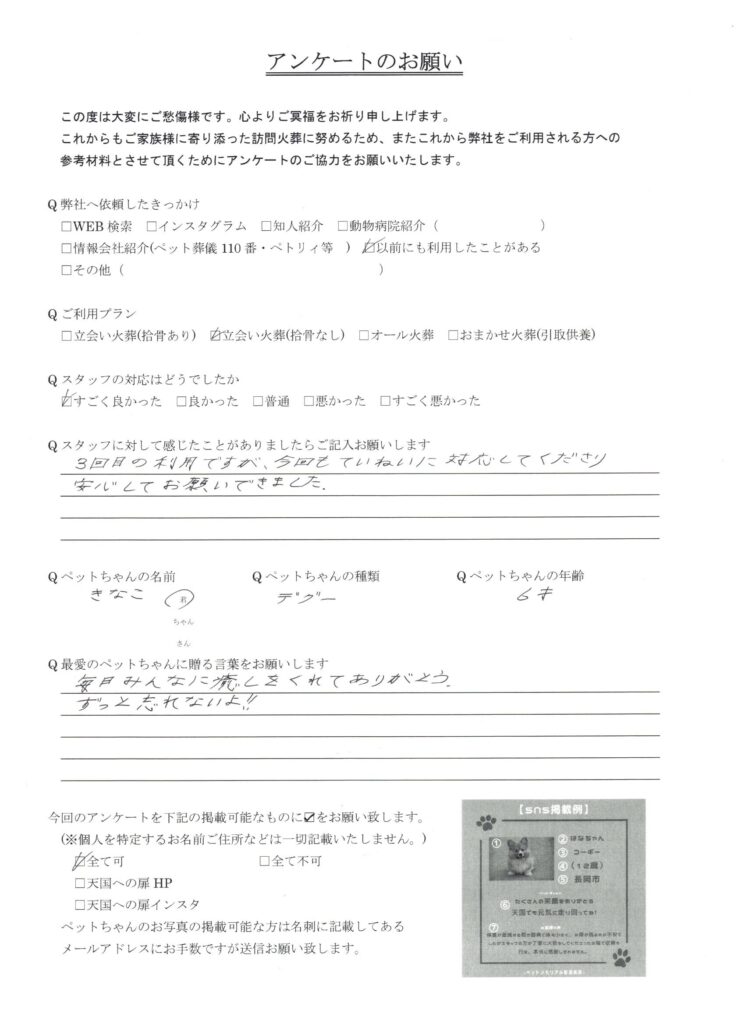 アンケートのお願い
この度は大変にご愁傷様です。心よりご冥福をお祈り申し上げます。
これからもご家族様に寄り添った訪問火葬に努めるため、またこれから弊社をご利用される方への
参考材料とさせて頂くためにアンケートのご協力をお願いいたします。
Q 弊社へ依頼したきっかけ
□WEB 検索 □インスタグラム □知人紹介 □動物病院紹介（ ）
□情報会社紹介(ペット葬儀 110 番・ペトリィ等 ) ☑以前にも利用したことがある
□その他（ ）
Q ご利用プラン
□立会い火葬(拾骨あり) ☑立会い火葬(拾骨なし) □オール火葬 □おまかせ火葬(引取供養)
Q スタッフの対応はどうでしたか
☑すごく良かった □良かった □普通 □悪かった □すごく悪かった
Q スタッフに対して感じたことがありましたらご記入お願いします
3回目の利用ですが、今回もていねいに対応してくださり
安心してお願いできました.
Q ペットちゃんの名前 Q ペットちゃんの種類 Q ペットちゃんの年齢
きなこ 君 デグー 6才
ちゃん
さん
Q 最愛のペットちゃんに贈る言葉をお願いします
毎日みんなに癒しをくれてありがとう.
ずっと忘れないよ!!
今回のアンケートを下記の掲載可能なものに☑をお願い致します。
(※個人を特定するお名前ご住所などは一切記載いたしません。)
☑全て可 □全て不可
□天国への扉 HP
□天国への扉インスタ
ペットちゃんのお写真の掲載可能な方は名刺に記載してある
メールアドレスにお手数ですが送信お願い致します。
【sns掲載例】
① ② はなちゃん
③ コーギー
④ (12歳)
⑤ 長岡市
⑥ たくさんの笑顔をありがとう
天国でも元気に走り回ってね!
⑦